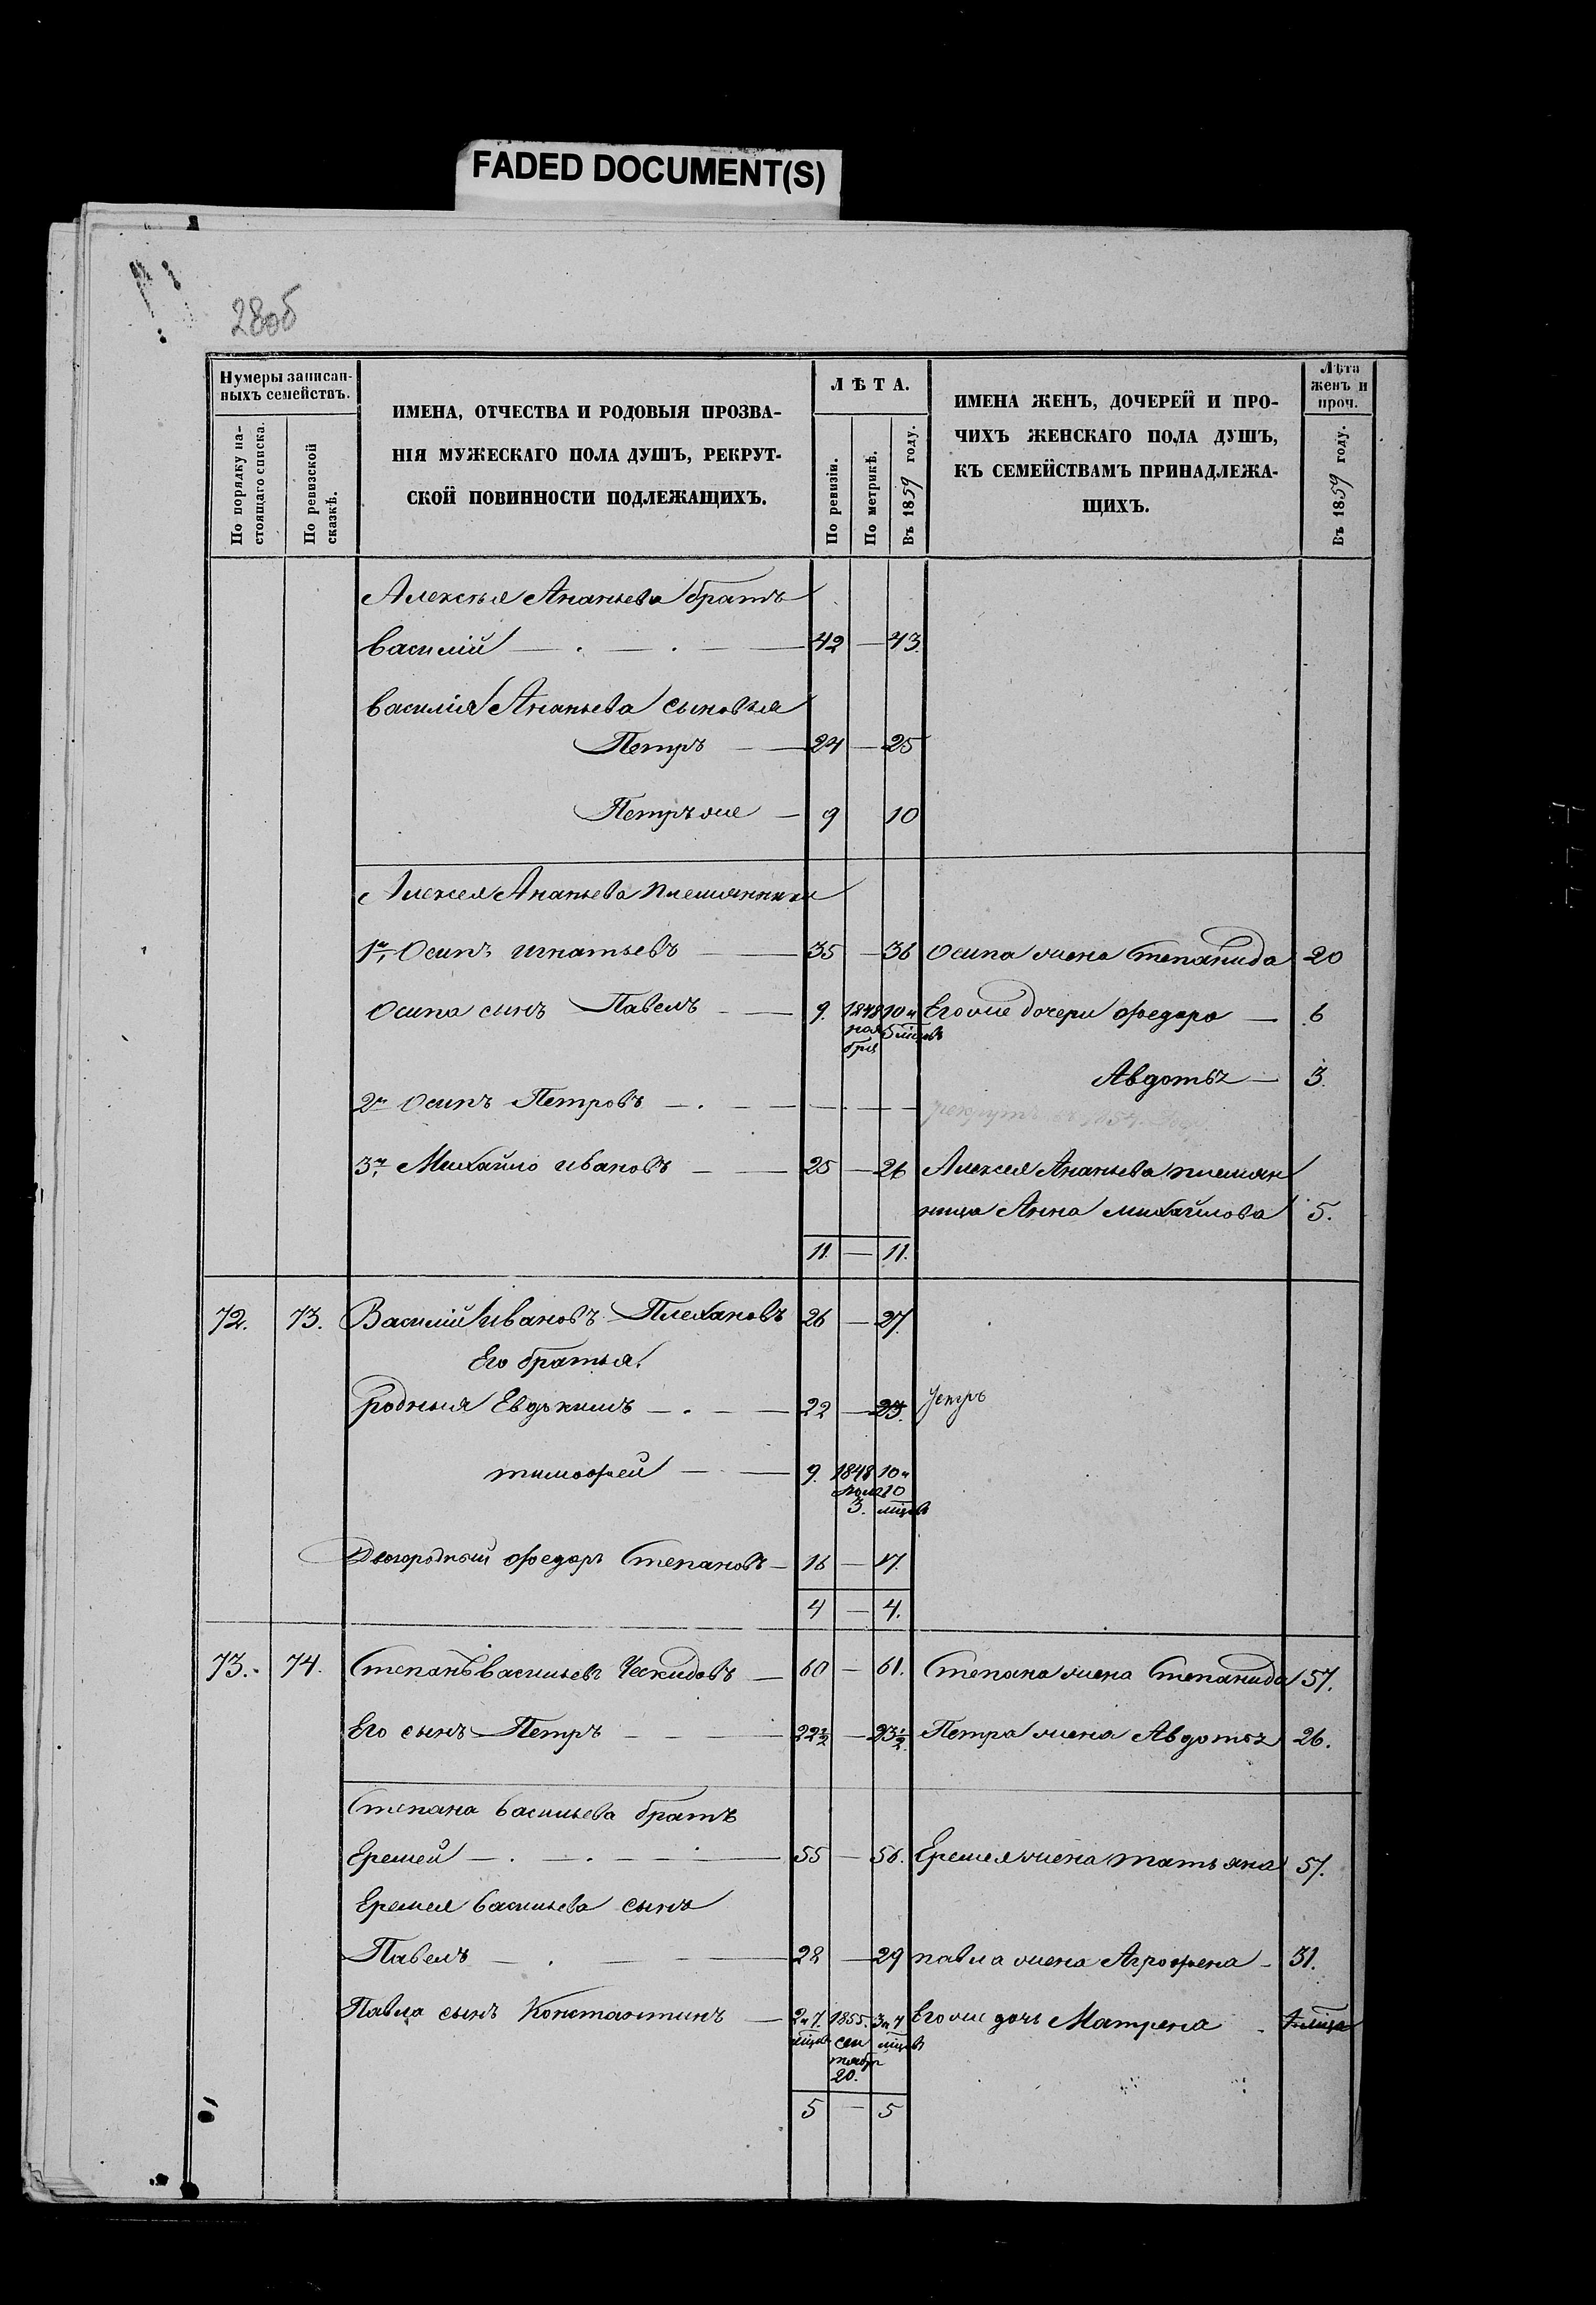 FADED DOCUMENT(S)
28об
Нумеры записан-
ныхъ семействъ.
По порядку на-
стоящаго списка.
По ревизской
сказкѣ.
ИМЕНА, ОТЧЕСТВА И РОДОВЫЯ ПРОЗВА-
НІЯ МУЖЕСКАГО ПОЛА ДУШЪ, РЕКРУТ-
СКОЙ ПОВИННОСТИ ПОДЛЕЖАЩИХЪ.
ЛѢТА.
По ревизіи.
По метрикѣ.
Въ 1859 году.
ИМЕНА ЖЕНЪ, ДОЧЕРЕЙ И ПРО-
ЧИХЪ ЖЕНСКАГО ПОЛА ДУШЪ,
КЪ СЕМЕЙСТВАМЪ ПРИНАДЛЕЖА-
ЩИХЪ.
Лѣта
женъ и
проч.
Въ 1859 году.
Алексѣя Ананьева братъ
Василій — 42 — 43.
Василія Ананьева сыновья
Петръ — 24 — 25
Петръ же — 9 10
Алексея Ананьева племянники
1й, Осипъ Игнатьевъ — 35 — 36 Осипа жена Степанида 20
Осипа сынъ Павелъ — 9. 1848 10 и Его же дочери Федора — 6
ноя
бря
мѣцовъ
Авдотья — 3.
2й Осипъ Петровъ — . — — — —
3й, Михайло Ивановъ — 25 — 26 Алексея Ананьева племян
ница Анна Михайлова 5.
11. — 11.
72. 73. Василій Ивановъ Плехановъ 26 — 27.
Его братья.
родныя Евдокимъ — . — 22 — 23. умръ
Тимофей — 9. 1848 10 и
10
3. мѣцовъ
Двоюродный Федоръ Степановъ — 16 — 17.
4 — 4.
73. 74. Степанъ Васильевъ Ческидовъ — 60 — 61. Степана жена Степанида 57.
Его сынъ Петръ — 22½ — 23½ Петра жена Авдотья 26.
Степана Васильева братъ
Еремей — . — . — 55 — 56. Еремея жена Татьяна 57.
Еремея Васильева сынъ
Павелъ — . — 28 — 29 Павла жена Агрофена — 31.
Павла сынъ Константинъ — 2 и 7. 1855. 3 и 7 Его же дочь Матрена
мѣцовъ сен мѣцовъ
тября
20.
5 — 5